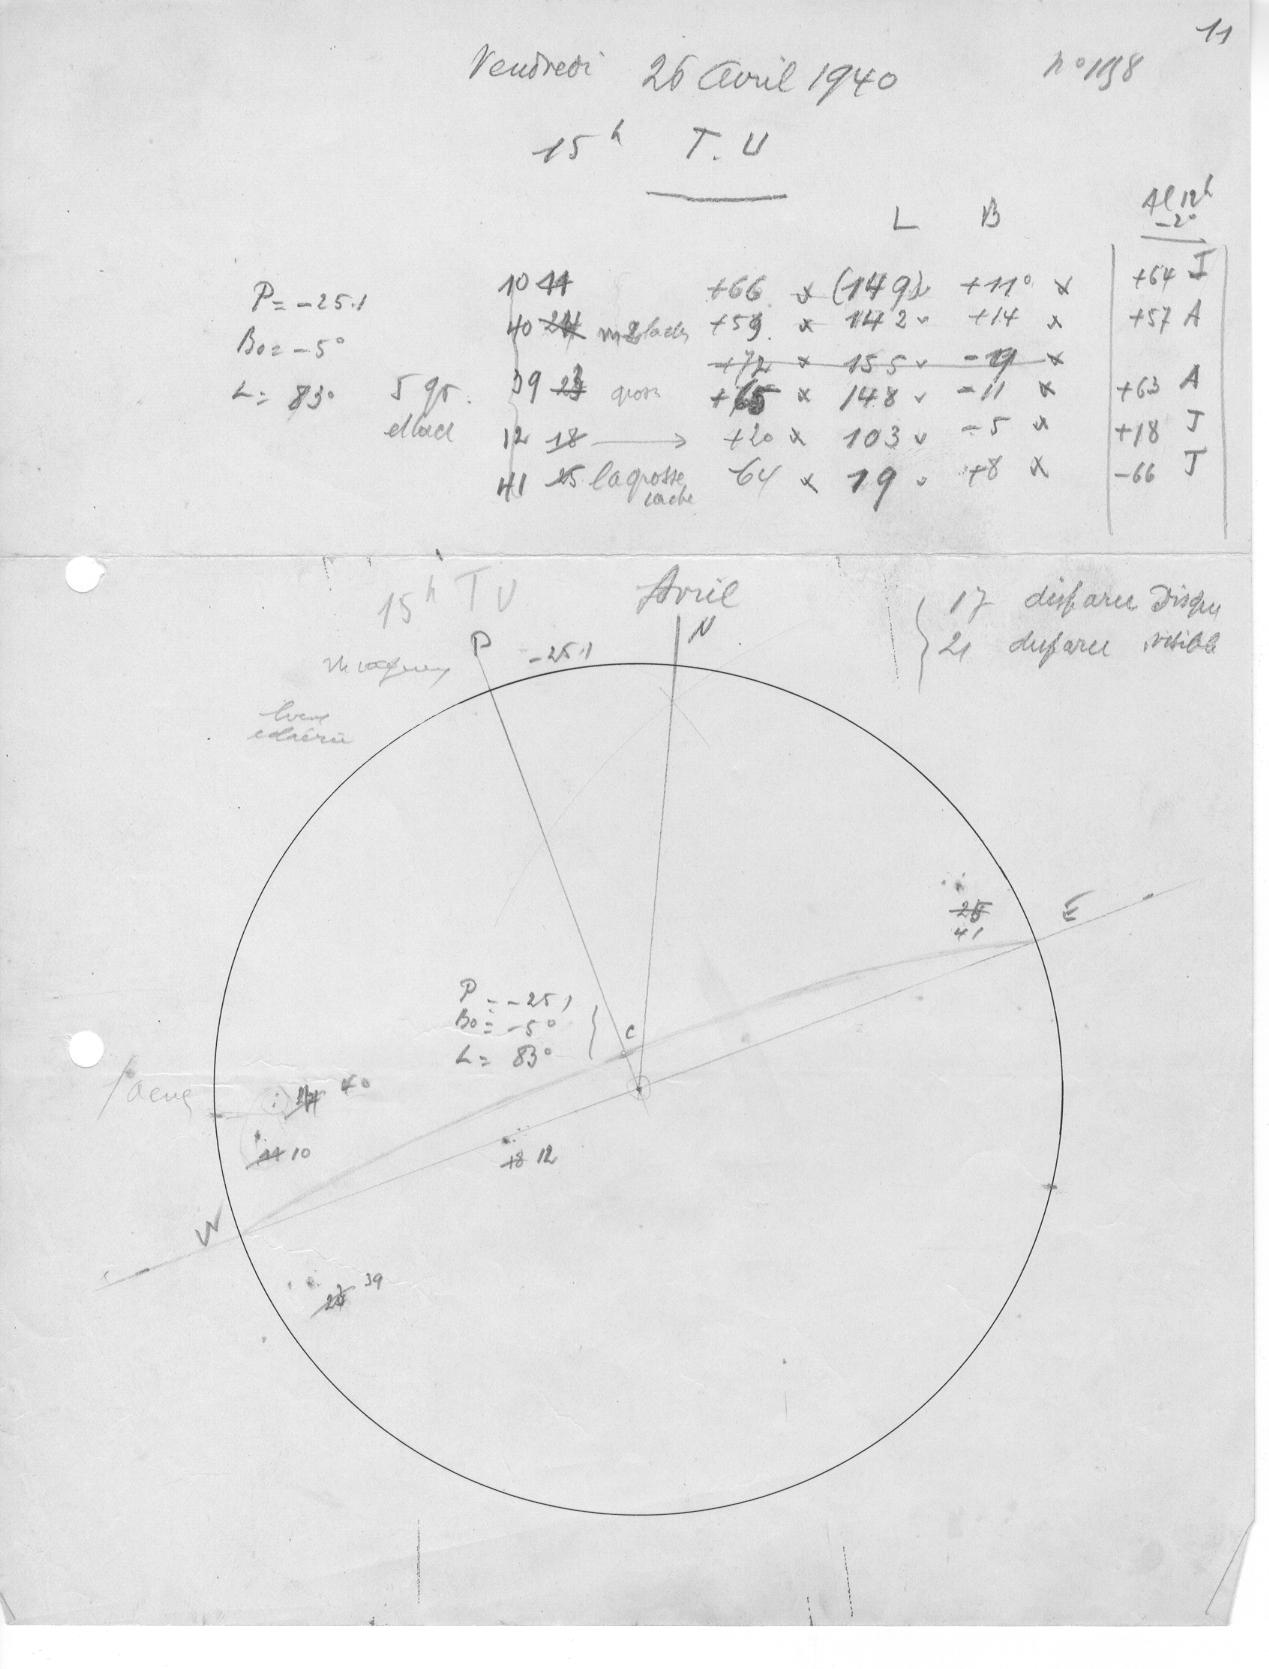 11
Vendredi 26 Avril 1940 n° 1138
15h T.U
L B Al 12h
-2°
P = -25.1
Bo = -5°
L = 83°
5 gr.
10 11 +66 x (149) v +11° x +64 J
40 24 +59 x 142 v +14 x +57 A
+72 x 155 v -19 x
39 23 gros +65 x 148 v -11 x +63 A
12 18 → +20 x 103 v -5 x +18 J
41 25 la grosse 64 x 19 v +8 x -66 J
tache
15h TU Avril
17 disparu Disque
21 disparu visible
P -25.1 N
25
41
E
P = -25.1
Bo = -5°
L = 83°
C
24 40
11 10
18 12
W
23 39